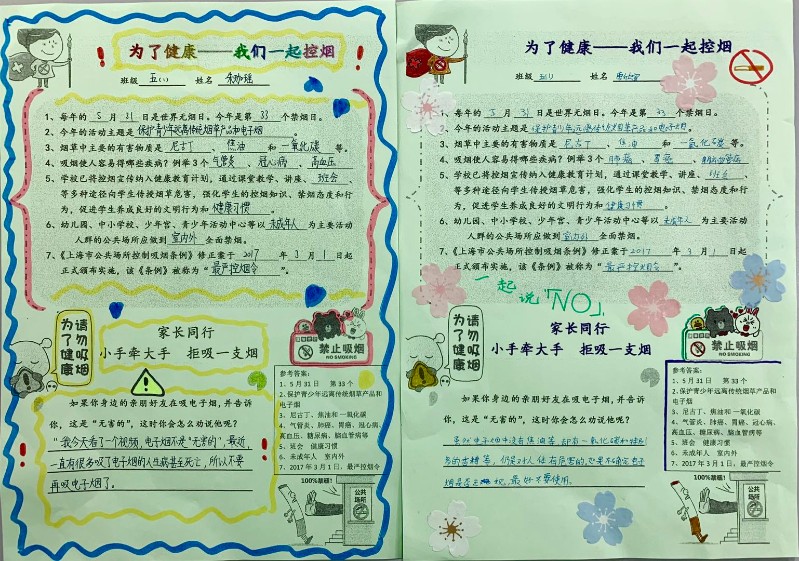 为了健康——我们一起控烟
班级 五(1) 姓名
1、每年的 5 月 31 日是世界无烟日。今年是第 33 个禁烟日。
2、今年的活动主题是 保护青少年远离传统烟草产品和电子烟 。
3、烟草中主要的有害物质是 尼古丁 、 焦油 和 一氧化碳 等。
4、吸烟使人容易得哪些疾病？例举3个 气管炎 、 冠心病 、 高血压
5、学校已将控烟宣传纳入健康教育计划，通过课堂教学、讲座、 班会
等多种途径向学生传授烟草危害，强化学生的控烟知识、禁烟态度和行
为，促进学生养成良好的文明行为和 健康习惯 。
6、幼儿园、中小学校、少年宫、青少年活动中心等以 未成年人 为主要活动
人群的公共场所应做到 室内外 全面禁烟。
7、《上海市公共场所控制吸烟条例》修正案于 2017 年 3 月 1 日起
正式颁布实施，该《条例》被称为“ 最严控烟令 ”。
请勿吸烟
为了健康
家长同行
小手牵大手 拒吸一支烟
禁止吸烟
NO SMOKING
如果你身边的亲朋好友在吸电子烟，并告诉
你，这是“无害的”，这时你会怎么劝说他呢？
"我今天看了一个视频，电子烟不是"无害的"，最近，
一直有很多吸了电子烟的人生病甚至死亡，所以不要
再吸电子烟了。
参考答案：
1、5月31日 第33个
2、保护青少年远离传统烟草产品和
电子烟
3、尼古丁、焦油和一氧化碳
4、气管炎、肺癌、胃癌、冠心病、
高血压、糖尿病、脑血管病等
5、班会 健康习惯
6、未成年人 室内外
7、2017年3月1日、最严控烟令
100%禁烟！
公共场所
为了健康——我们一起控烟
班级 五(1) 姓名
1、每年的 5 月 31 日是世界无烟日。今年是第 33 个禁烟日。
2、今年的活动主题是 保护青少年远离传统烟草产品和电子烟 。
3、烟草中主要的有害物质是 尼古丁 、 焦油 和 一氧化碳 等。
4、吸烟使人容易得哪些疾病？例举3个 肺癌 、 胃癌 、
5、学校已将控烟宣传纳入健康教育计划，通过课堂教学、讲座、 班会
等多种途径向学生传授烟草危害，强化学生的控烟知识、禁烟态度和行
为，促进学生养成良好的文明行为和 健康习惯 。
6、幼儿园、中小学校、少年宫、青少年活动中心等以 未成年人 为主要活动
人群的公共场所应做到 室内外 全面禁烟。
7、《上海市公共场所控制吸烟条例》修正案于 2017 年 3 月 1 日起
正式颁布实施，该《条例》被称为“ 最严控烟令 ”。
一起说「NO」
请勿吸烟
为了健康
家长同行
小手牵大手 拒吸一支烟
禁止吸烟
NO SMOKING
如果你身边的亲朋好友在吸电子烟，并告诉
你，这是“无害的”，这时你会怎么劝说他呢？
虽然电子烟中没有焦油等，却有一氧化碳和
等，仍是对人体有害的，如果不确定电子
烟是否 ，最好不要使用。
参考答案：
1、5月31日 第33个
2、保护青少年远离传统烟草产品和
电子烟
3、尼古丁、焦油和一氧化碳
4、气管炎、肺癌、胃癌、冠心病、
高血压、糖尿病、脑血管病等
5、班会 健康习惯
6、未成年人 室内外
7、2017年3月1日、最严控烟令
100%禁烟！
公共场所